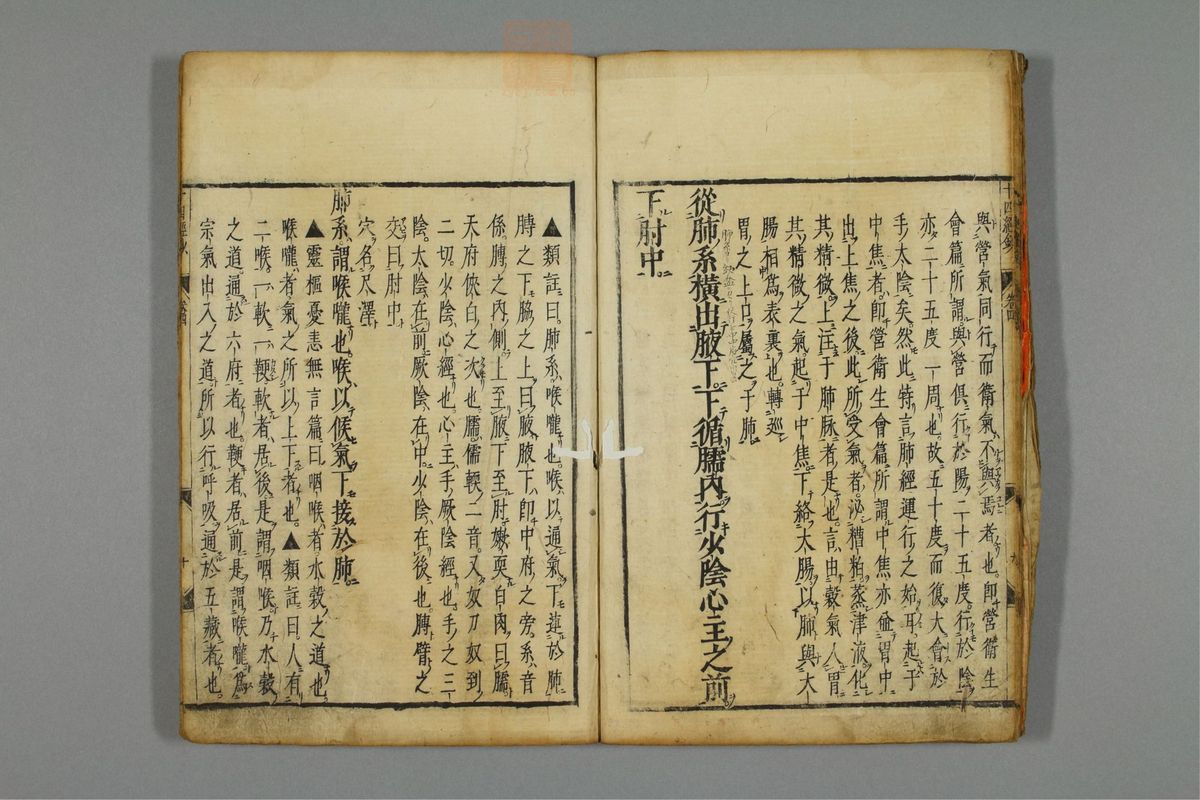 與營氣同行而衛氣不與焉者也即營衛生
會篇所謂與營俱行於陽二十五度行於陰
亦二十五度一周也故五十度而復大會於
手太陰矣然此特言肺經運行之始耳起于
中焦者即營衛生會篇所謂中焦亦並胃中
出上焦之後此所受氣者泌糟粕蒸津液化
其精微上注于肺脉者是也言由穀氣人胃
其精微之氣起于中焦下絡大腸以肺與大
腸相為表裏也轉巡
胃之上口屬之于肺
從肺系橫出腋下下循臑内行少陰心主之前
下肘中
▲類註曰肺系喉嚨也喉以通氣下連於肺
膊之下脇之上曰腋腋下即中府之旁系音
係膊之内側上至腋下至肘嫰耎白肉曰臑
天府俠白之次也臑儒輭二音又奴刀奴到
二切少陰心經也心主手厥陰經也手之三
陰太陰在前厥陰在中少陰在後也膊臂之
交曰肘中
穴名尺澤
肺系謂喉嚨也喉以候氣下接於肺
▲靈樞憂恚無言篇曰咽喉者水穀之道也
喉嚨者氣之所以上下者也▲類註曰人有
二喉一軟一鞕軟者居後是謂咽喉乃水穀
之道通於六府者也鞕者居前是謂喉嚨為
宗氣出入之道所以行呼吸通於五藏者也